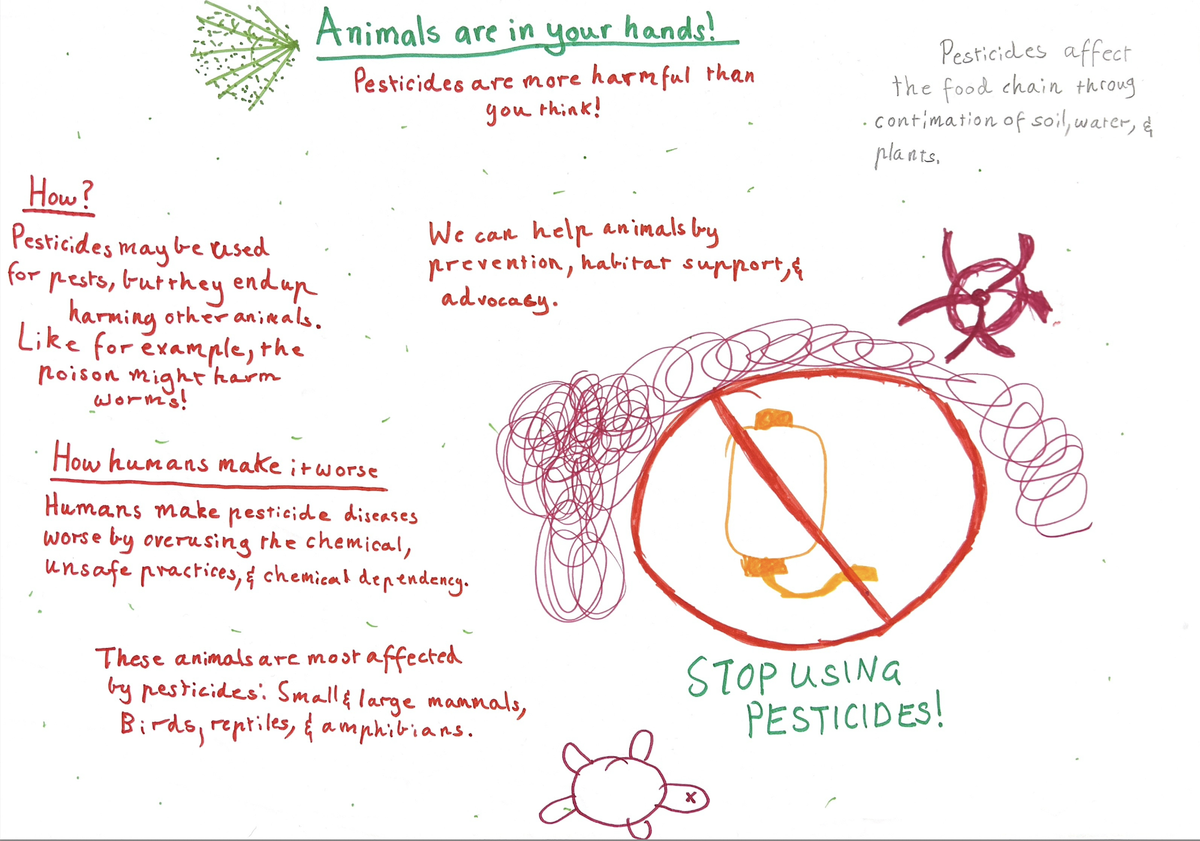 Animals are in your hands!
Pesticides are more harmful than
you think!
Pesticides affect
the food chain throug
contimation of soil, water, &
plants.
How?
Pesticides may be used
for pests, but they end up
harming other animals.
Like for example, the
poison might harm
worms!
We can help animals by
prevention, habitat support, &
advocacy.
How humans make it worse
Humans make pesticide diseases
worse by overusing the chemical,
unsafe practices, & chemical dependency.
These animals are most affected
by pesticides: Small & large mammals,
Birds, reptiles, & amphibians.
STOP USING
PESTICIDES!